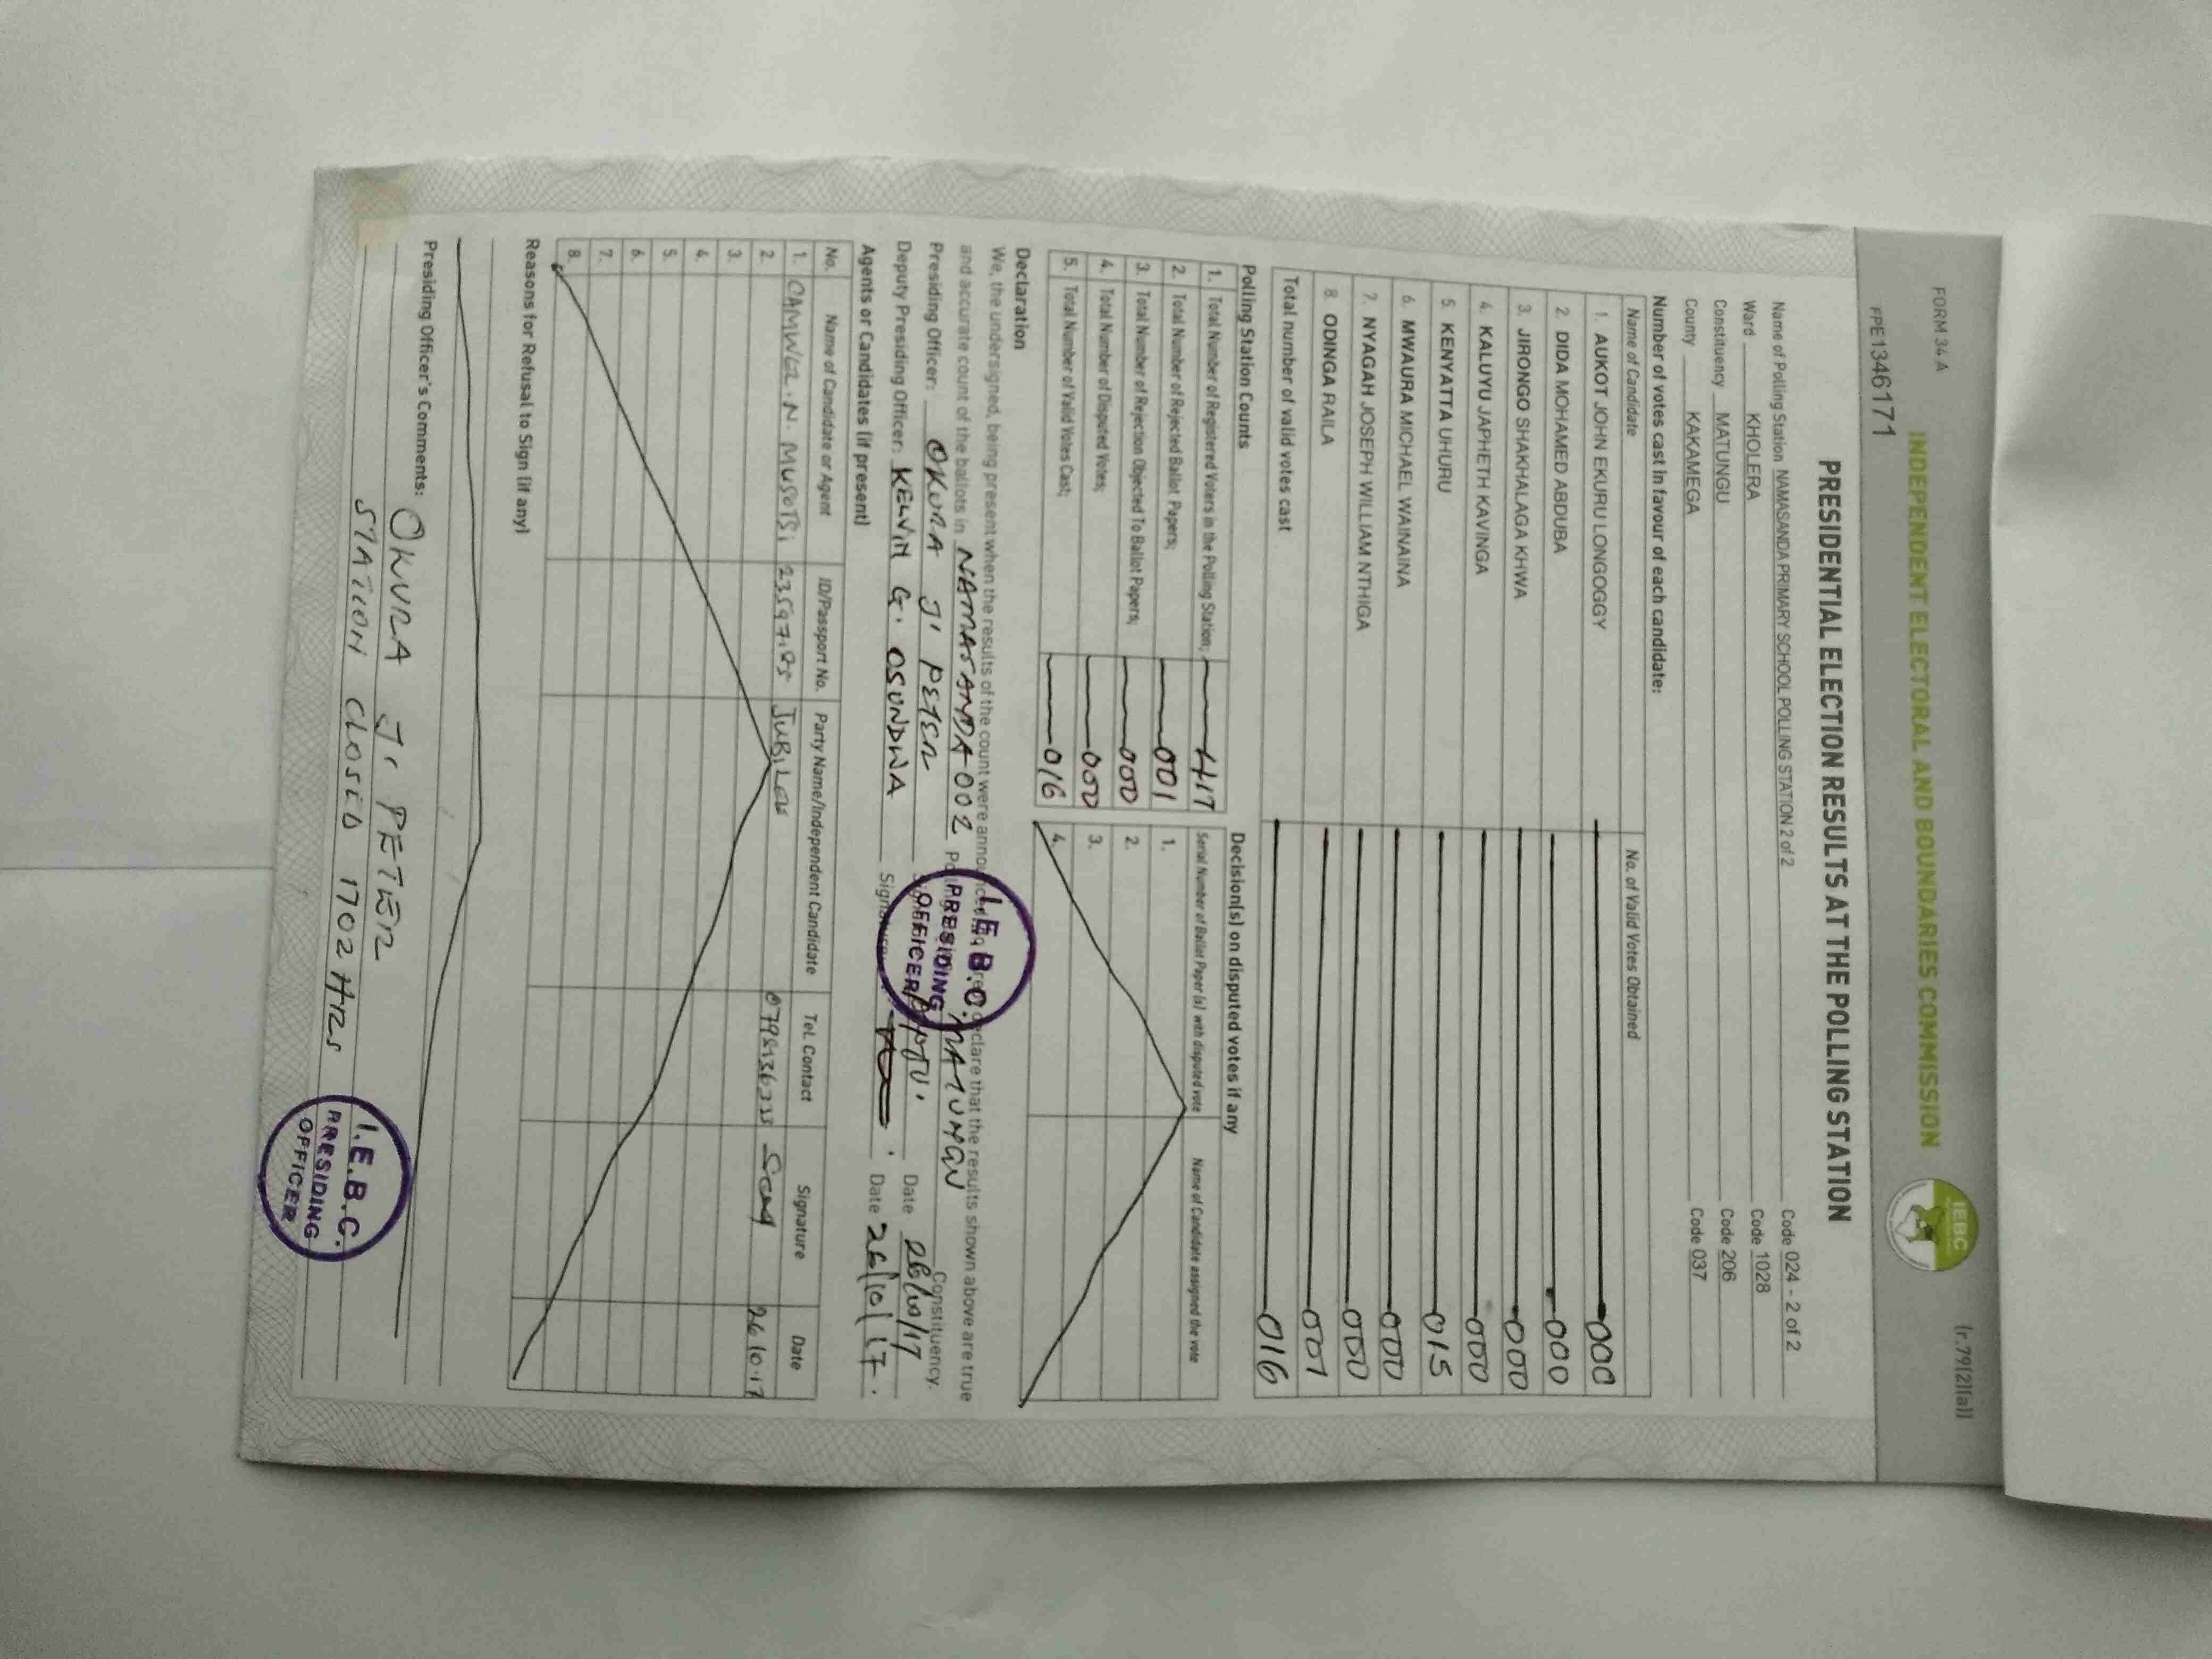 FORM 34 A
(r.79(2)(a))
INDEPENDENT ELECTORAL AND BOUNDARIES COMMISSION
IEBC
FPE1346171
PRESIDENTIAL ELECTION RESULTS AT THE POLLING STATION
Name of Polling Station NAMASANDA PRIMARY SCHOOL POLLING STATION 2 of 2 Code 024 - 2 of 2
Ward KHOLERA Code 1028
Constituency MATUNGU Code 206
County KAKAMEGA Code 037
Number of votes cast in favour of each candidate:
Name of Candidate No. of Valid Votes Obtained
1. AUKOT JOHN EKURU LONGOGGY 000
2. DIDA MOHAMED ABDUBA 000
3. JIRONGO SHAKHALAGA KHWA 000
4. KALUYU JAPHETH KAVINGA 000
5. KENYATTA UHURU 015
6. MWAURA MICHAEL WAINAINA 000
7. NYAGAH JOSEPH WILLIAM NTHIGA 000
8. ODINGA RAILA 001
Total number of valid votes cast 016
Polling Station Counts
1. Total Number of Registered Voters in the Polling Station; 417
2. Total Number of Rejected Ballot Papers; 001
3. Total Number of Rejection Objected To Ballot Papers; 000
4. Total Number of Disputed Votes; 000
5. Total Number of Valid Votes Cast; 016
Decision(s) on disputed votes if any
Serial Number of Ballot Paper (s) with disputed vote Name of Candidate assigned the vote
1.
2.
3.
4.
Declaration
We, the undersigned, being present when the results of the count were announced, declare that the results shown above are true
and accurate count of the ballots in NAMASANDA 002 MATUNGU Constituency.
Presiding Officer: OKURA J. PETER Date 26/10/17
Deputy Presiding Officer: KELVIN G. OSUNDWA Signature: Date 26/10/17.
I.E.B.C.
PRESIDING
OFFICER
Agents or Candidates (if present)
No. Name of Candidate or Agent ID/Passport No. Party Name/Independent Candidate Tel. Contact Signature Date
1. N. MUSOTSI JUBILEE 26/10.17
2.
3.
4.
5.
6.
7.
8.
Reasons for Refusal to Sign (if any)
Presiding Officer's Comments: OKURA J. PETER
STATION CLOSED 1702 HRS
I.E.B.C.
PRESIDING
OFFICER